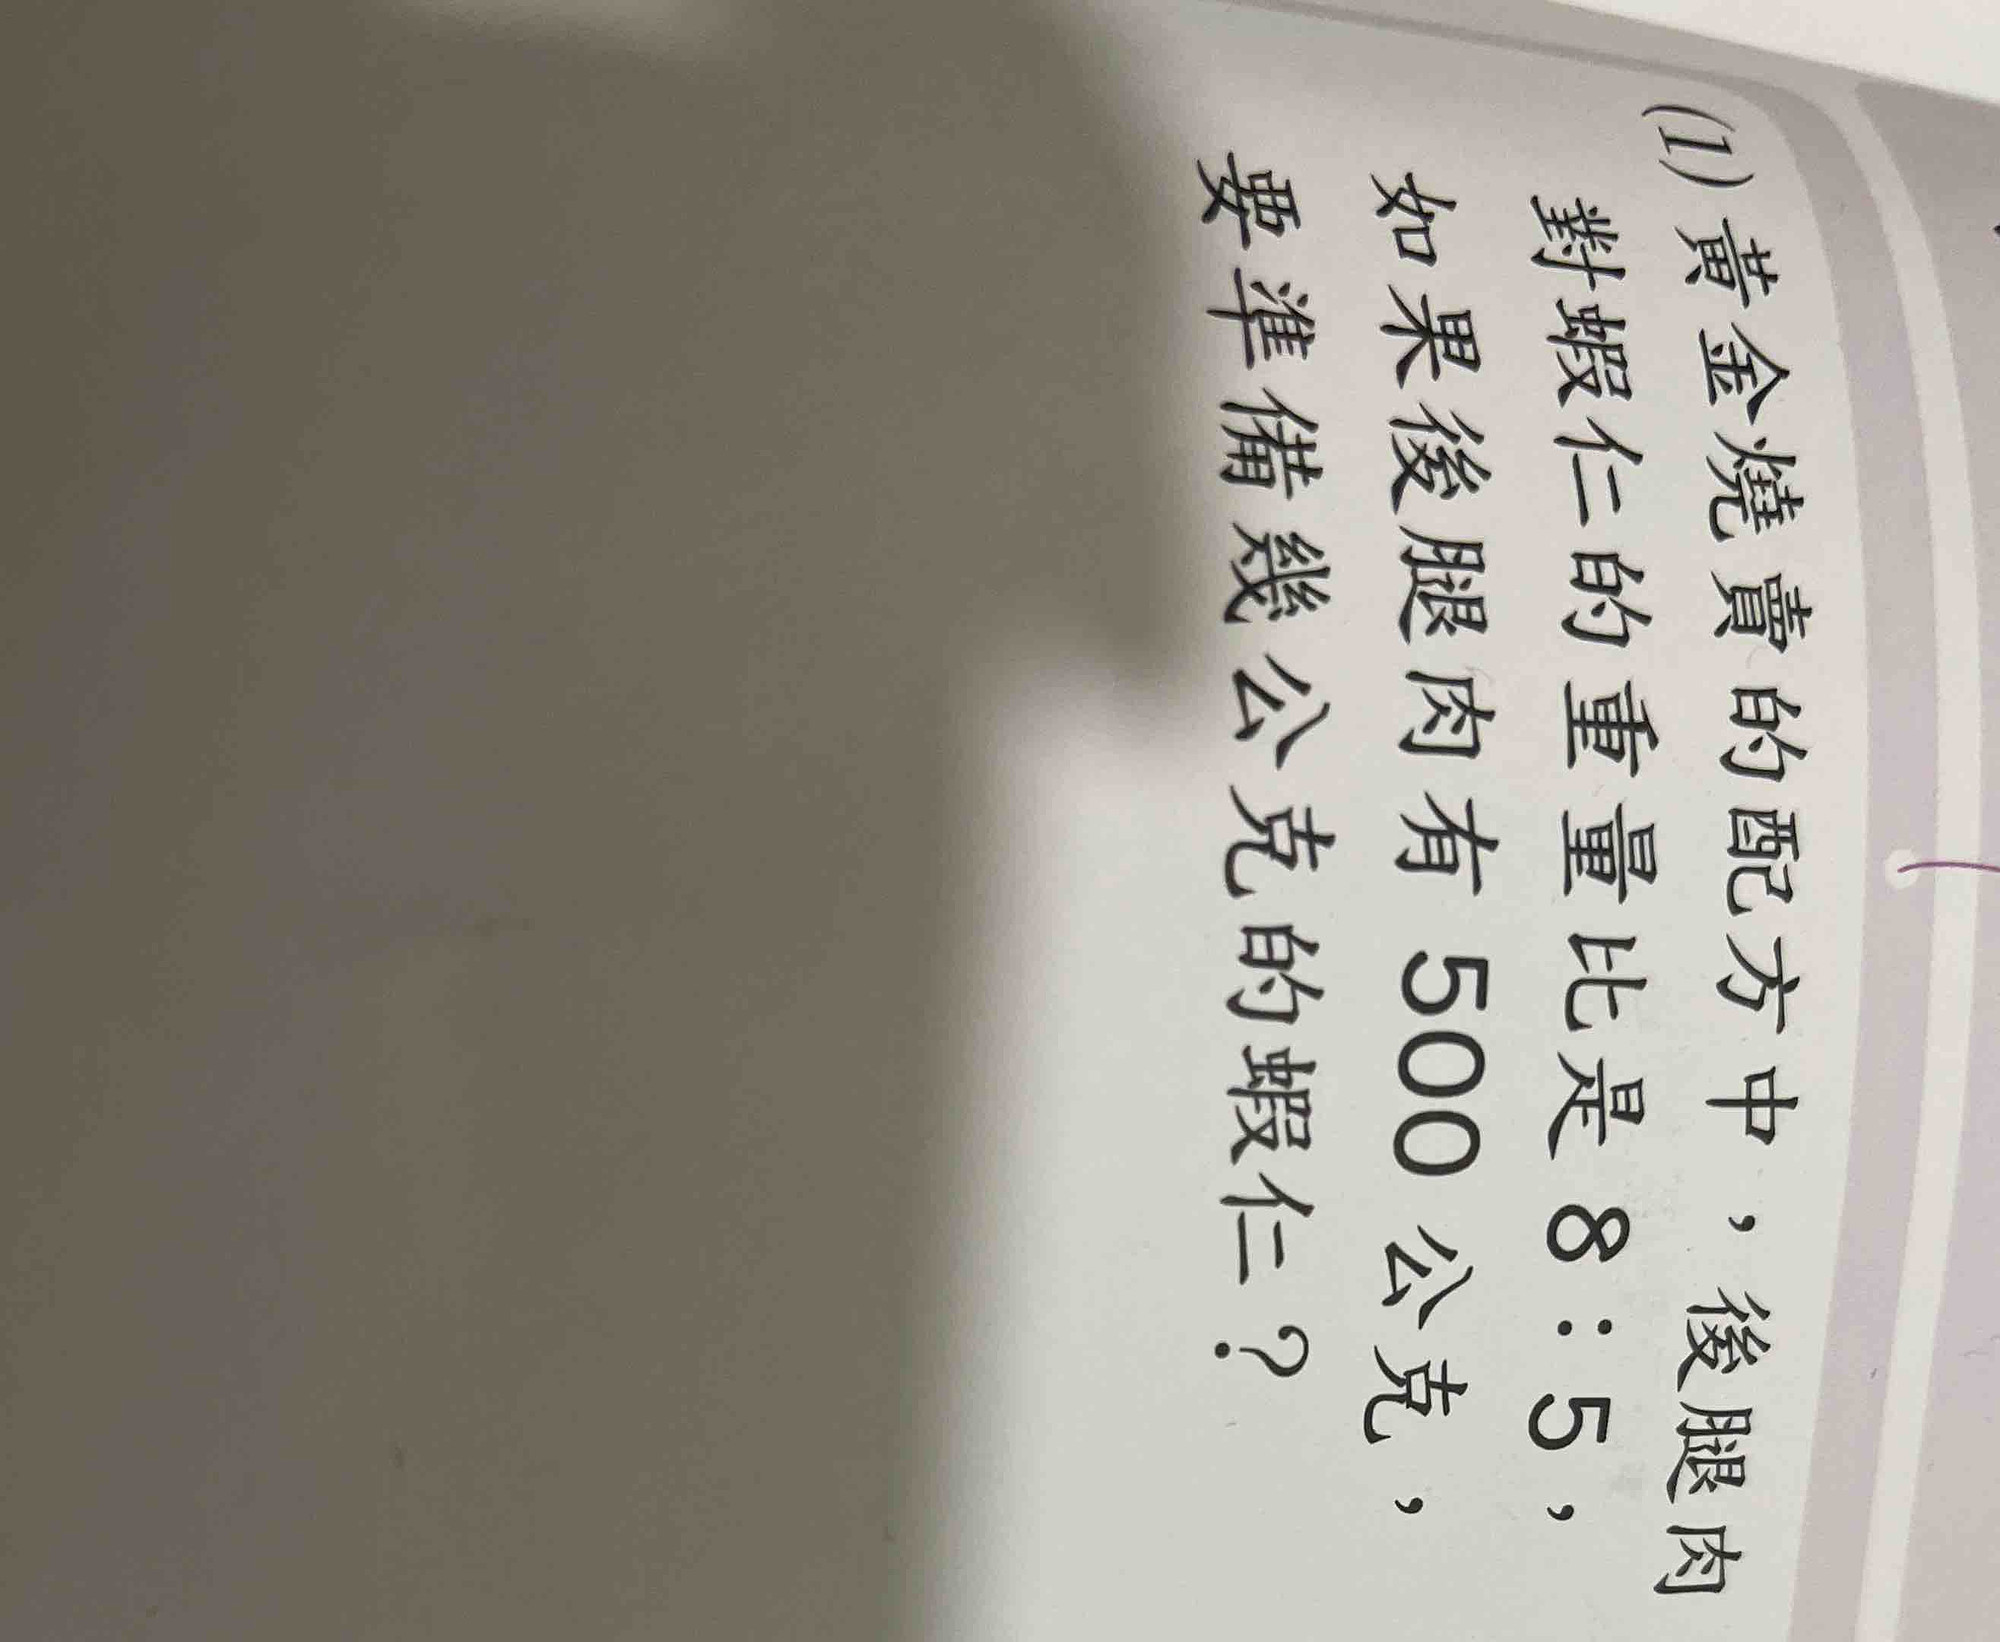 (1)黃金燒賣的配方中，後腿肉
對蝦仁的重量比是8：5，
如果後腿肉有500公克，
要準備幾公克的蝦仁？